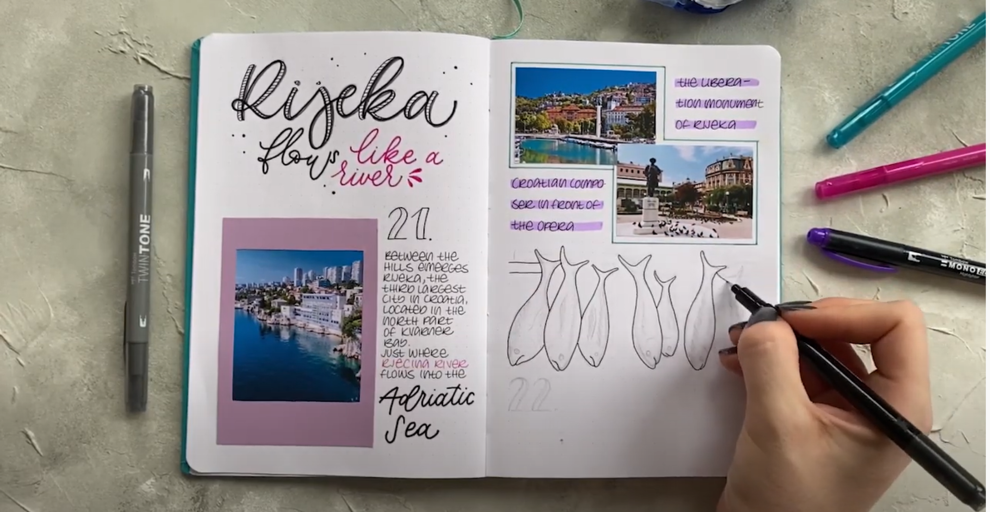 Rijeka
flows like a
river
21.
BETWEEN THE
HILLS EMERGES
RIJEKA, THE
THIRD LARGEST
CITY IN CROATIA,
LOCATED IN THE
NORTH PART
OF KVARNER
BAY.
JUST WHERE
RJEČINA RIVER
FLOWS INTO THE
Adriatic
Sea
THE LIBERA-
TION MONUMENT
OF RIJEKA
CROATIAN COMPO
SER IN FRONT OF
THE OPERA
22.
TWINTONE
MONO